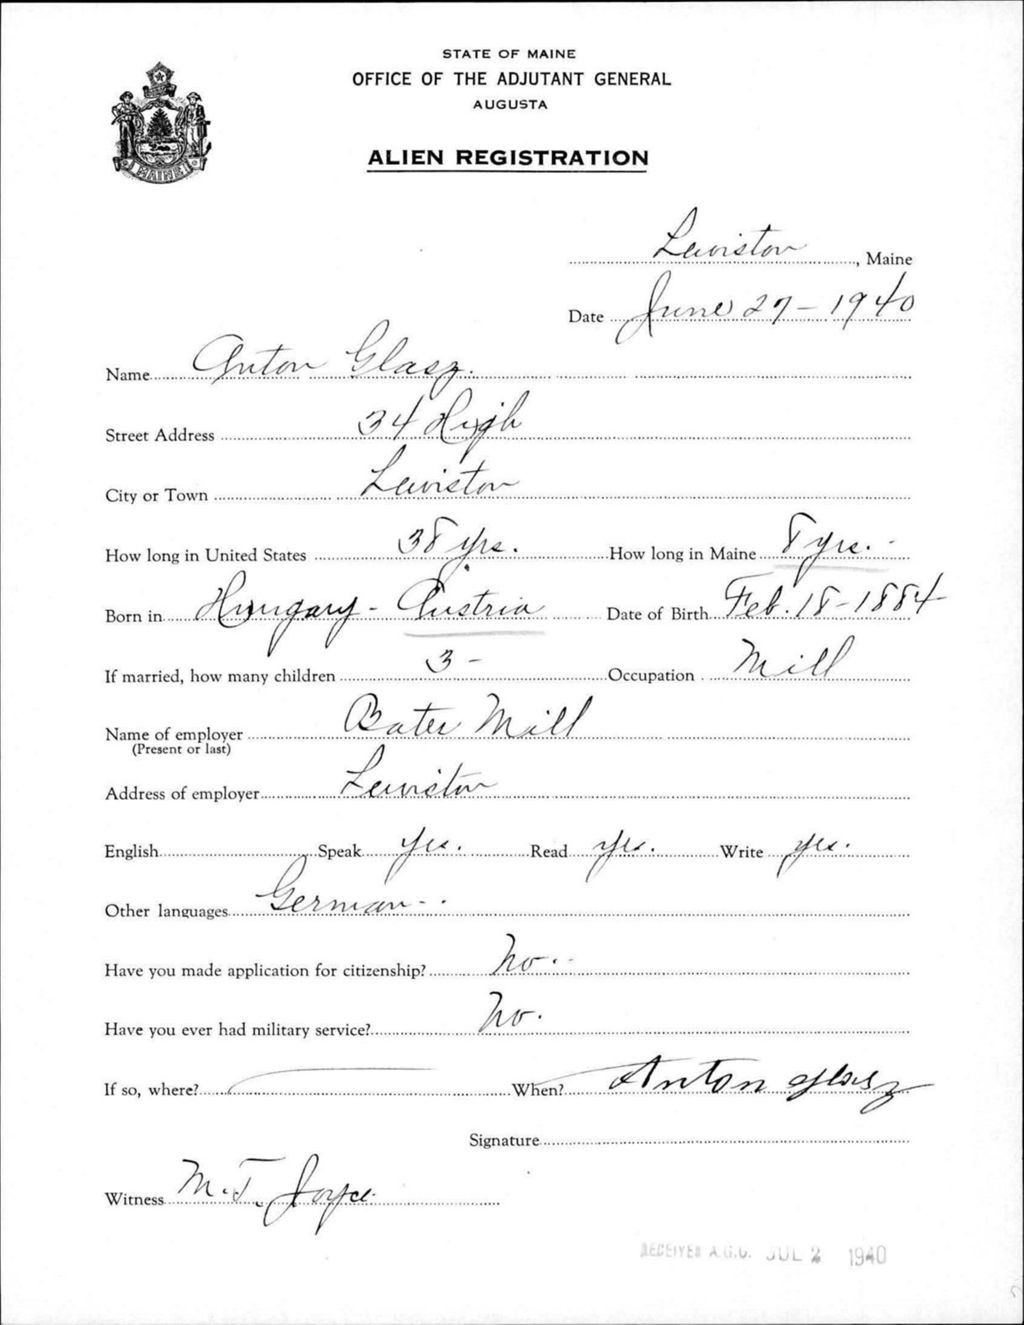 STATE OF MAINE
OFFICE OF THE ADJUTANT GENERAL
AUGUSTA
ALIEN REGISTRATION
MAINE
Lewiston, Maine
Date June 27-1940
Name Anton Glasz.
Street Address 34 High
City or Town Lewiston
How long in United States 38 yrs. How long in Maine 8 yrs.
Born in Hungary - Austria Date of Birth Feb. 18-1884
If married, how many children 3 - Occupation Mill
Name of employer Bates Mill
(Present or last)
Address of employer Lewiston
English Speak Yes. Read Yes. Write Yes.
Other languages German
Have you made application for citizenship? No.
Have you ever had military service? No.
If so, where? When? Anton Glasz
Signature
Witness M.T. Joyce
RECEIVED A.G.O. JUL 2 1940